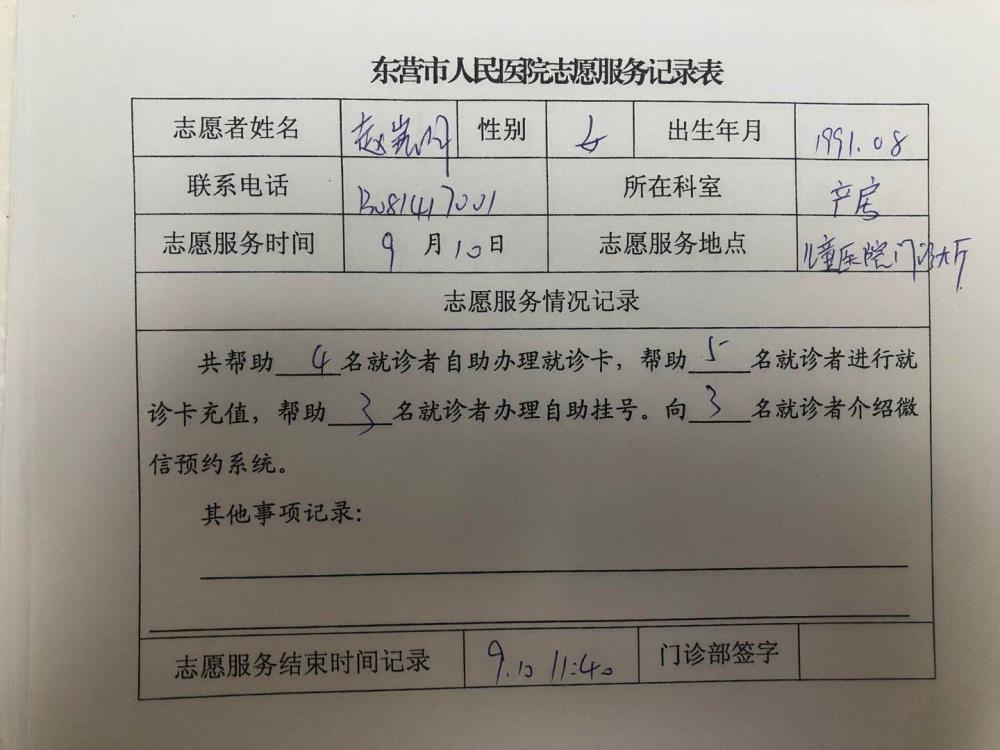 东营市人民医院志愿服务记录表
志愿者姓名 赵 性别 女 出生年月 1991.08
联系电话 所在科室 产房
志愿服务时间 9 月 10 日 志愿服务地点 儿童医院门诊大厅
志愿服务情况记录
共帮助 4 名就诊者自助办理就诊卡，帮助 5 名就诊者进行就
诊卡充值，帮助 3 名就诊者办理自助挂号。向 3 名就诊者介绍微
信预约系统。
其他事项记录：
志愿服务结束时间记录 9.10 11:40 门诊部签字